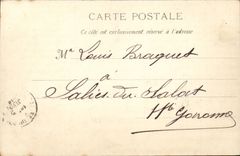 CARTE POSTALE
Ce côté est exclusivement réservé à l'adresse
Mr Louis Braquet
à
Salies-du-Salat
Hte Garonne